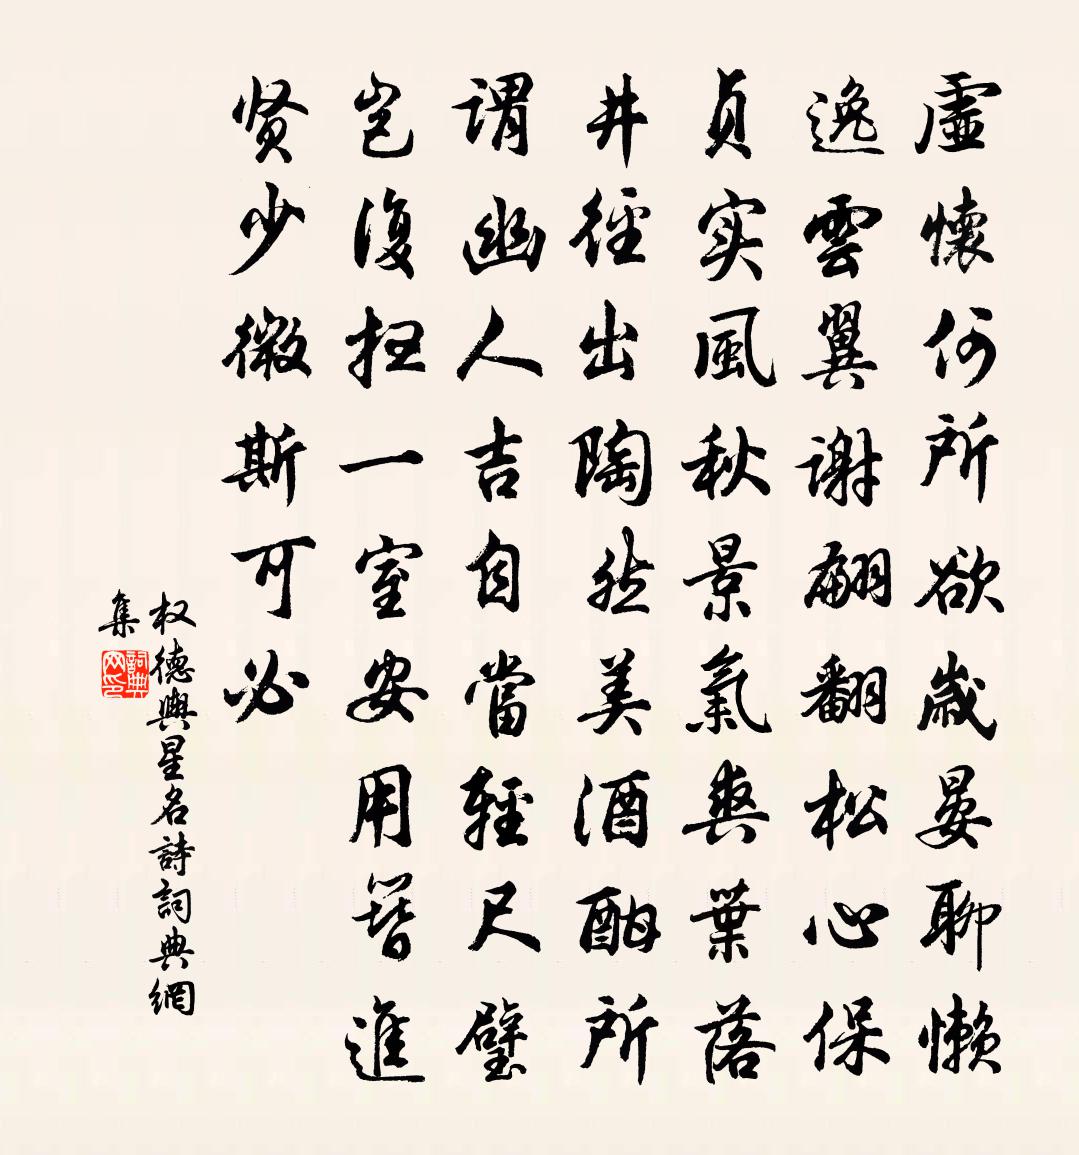 虛懷何所欲歲晏聊懶
逸雲翼謝翩翻松心保
貞实風秋景氣爽葉落
井徑出陶然美酒酣所
謂幽人吉自當輕尺璧
岂復扫一室安用簪進
贤少微斯可必
权德輿星名詩詞典網
集
詞典
网印